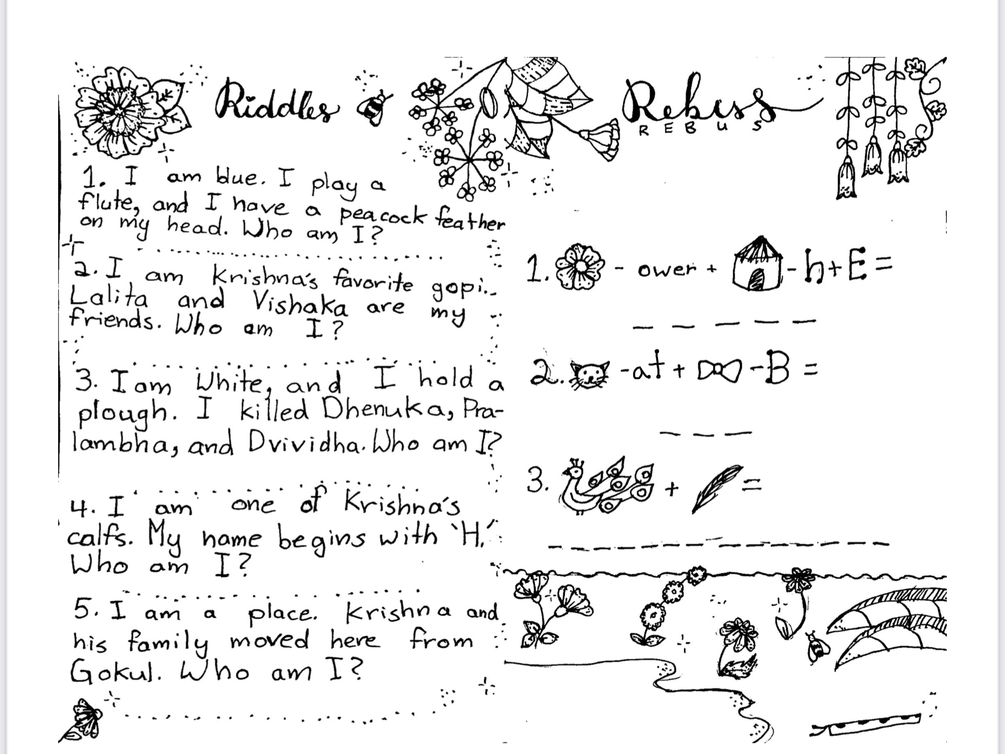 Riddles
1. I am blue. I play a
flute, and I have a peacock feather
on my head. Who am I?
2. I am Krishna's favorite gopi.
Lalita and Vishaka are my
friends. Who am I?
3. I am White, and I hold a
plough. I killed Dhenuka, Pra-
lambha, and Dvividha. Who am I?
4. I am one of Krishna's
calfs. My name begins with 'H.'
Who am I?
5. I am a place. Krishna and
his family moved here from
Gokul. Who am I?
Rebus
REBUS
1. - ower + - h + E =
_ _ _ _ _
2. -at + -B =
_ _ _
3. + =
_ _ _ _ _ _ _ _ _ _ _ _ _ _